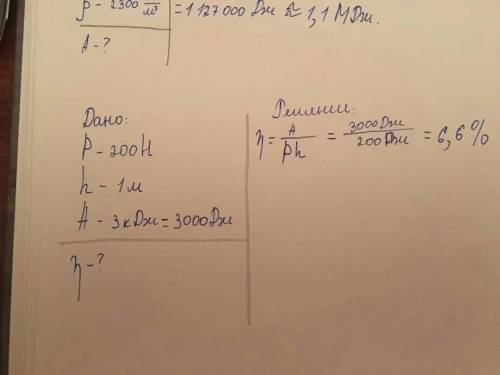 ρ - 2300 —/м³ = 1 127 000 Дж ≈ 1,1 МДж.
A - ?
Дано:
P - 200 Н
h - 1 м
A - 3 кДж = 3000 Дж
η - ?
Решение:
η = A/Ph = 3000 Дж/200 Дж = 6,6 %